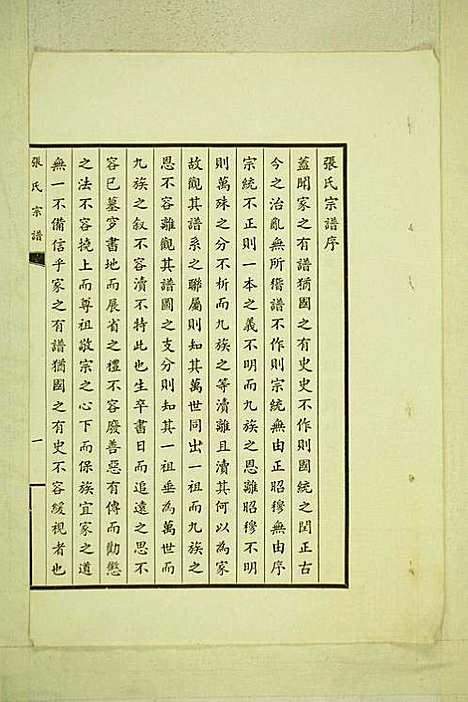 張氏宗譜序
蓋聞家之有譜猶國之有史史不作則國統之閏正古
今之治亂無所稽譜不作則宗統無由正昭穆無由序
宗統不正則一本之義不明而九族之恩離昭穆不明
則萬殊之分不析而九族之等瀆離且瀆其何以為家
故觀其譜系之聯屬則知其萬世同出一祖而九族之
恩不容離觀其譜圖之支分則知其一祖垂為萬世而
九族之敘不容瀆不特此也生卒書日而追遠之思不
容已墓穸書地而展省之禮不容廢善惡有傳而勸懲
之法不容撓上而尊祖敬宗之心下而保族宜家之道
無一不備信乎家之有譜猶國之有史不容緩視者也
張氏宗譜
一